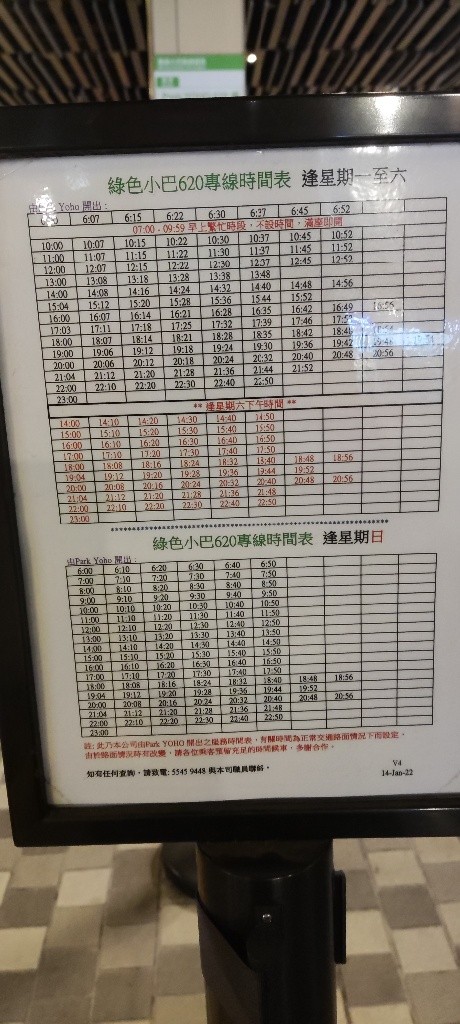 綠色小巴620專線時間表 逢星期一至六
Yoho 開出：
6:07 6:15 6:22 6:30 6:37 6:45 6:52
07:00 - 09:59 早上繁忙時段，不設時間，滿座即開
10:00 10:07 10:15 10:22 10:30 10:37 10:45 10:52
11:00 11:07 11:15 11:22 11:30 11:37 11:45 11:52
12:00 12:07 12:15 12:22 12:30 12:37 12:45 12:52
13:00 13:08 13:18 13:28 13:38 13:48
14:00 14:08 14:16 14:24 14:32 14:40 14:48 14:56
15:04 15:12 15:20 15:28 15:36 15:44 15:52
16:00 16:07 16:14 16:21 16:28 16:35 16:42 16:49 16:56
17:03 17:11 17:18 17:25 17:32 17:39 17:46
18:00 18:07 18:14 18:21 18:28 18:35 18:42
19:00 19:06 19:12 19:18 19:24 19:30 19:36 19:42
20:00 20:06 20:12 20:18 20:24 20:32 20:40 20:48 20:56
21:04 21:12 21:20 21:28 21:36 21:44 21:52
22:00 22:10 22:20 22:30 22:40 22:50
23:00
** 逢星期六下午時間 **
14:00 14:10 14:20 14:30 14:40 14:50
15:00 15:10 15:20 15:30 15:40 15:50
16:00 16:10 16:20 16:30 16:40 16:50
17:00 17:10 17:20 17:30 17:40 17:50
18:00 18:08 18:16 18:24 18:32 18:40 18:48 18:56
19:04 19:12 19:20 19:28 19:36 19:44 19:52
20:00 20:08 20:16 20:24 20:32 20:40 20:48 20:56
21:04 21:12 21:20 21:28 21:36 21:48
22:00 22:10 22:20 22:30 22:40 22:50
23:00
綠色小巴620專線時間表 逢星期日
由Park Yoho 開出：
6:00 6:10 6:20 6:30 6:40 6:50
7:00 7:10 7:20 7:30 7:40 7:50
8:00 8:10 8:20 8:30 8:40 8:50
9:00 9:10 9:20 9:30 9:40 9:50
10:00 10:10 10:20 10:30 10:40 10:50
11:00 11:10 11:20 11:30 11:40 11:50
12:00 12:10 12:20 12:30 12:40 12:50
13:00 13:10 13:20 13:30 13:40 13:50
14:00 14:10 14:20 14:30 14:40 14:50
15:00 15:10 15:20 15:30 15:40 15:50
16:00 16:10 16:20 16:30 16:40 16:50
17:00 17:10 17:20 17:30 17:40 17:50
18:00 18:08 18:16 18:24 18:32 18:40 18:48 18:56
19:04 19:12 19:20 19:28 19:36 19:44 19:52
20:00 20:08 20:16 20:24 20:32 20:40 20:48 20:56
21:04 21:12 21:20 21:28 21:36 21:48
22:00 22:10 22:20 22:30 22:40 22:50
23:00
註: 此乃本公司由Park YOHO 開出之服務時間表，有關時間為正常交通路面情況下而設定，
由於路面情況時有改變，請各位乘客預留充足的時間候車，多謝合作。
如有任何查詢，請致電: 5545 9448 與本司職員聯絡。
V4
14-Jan-22